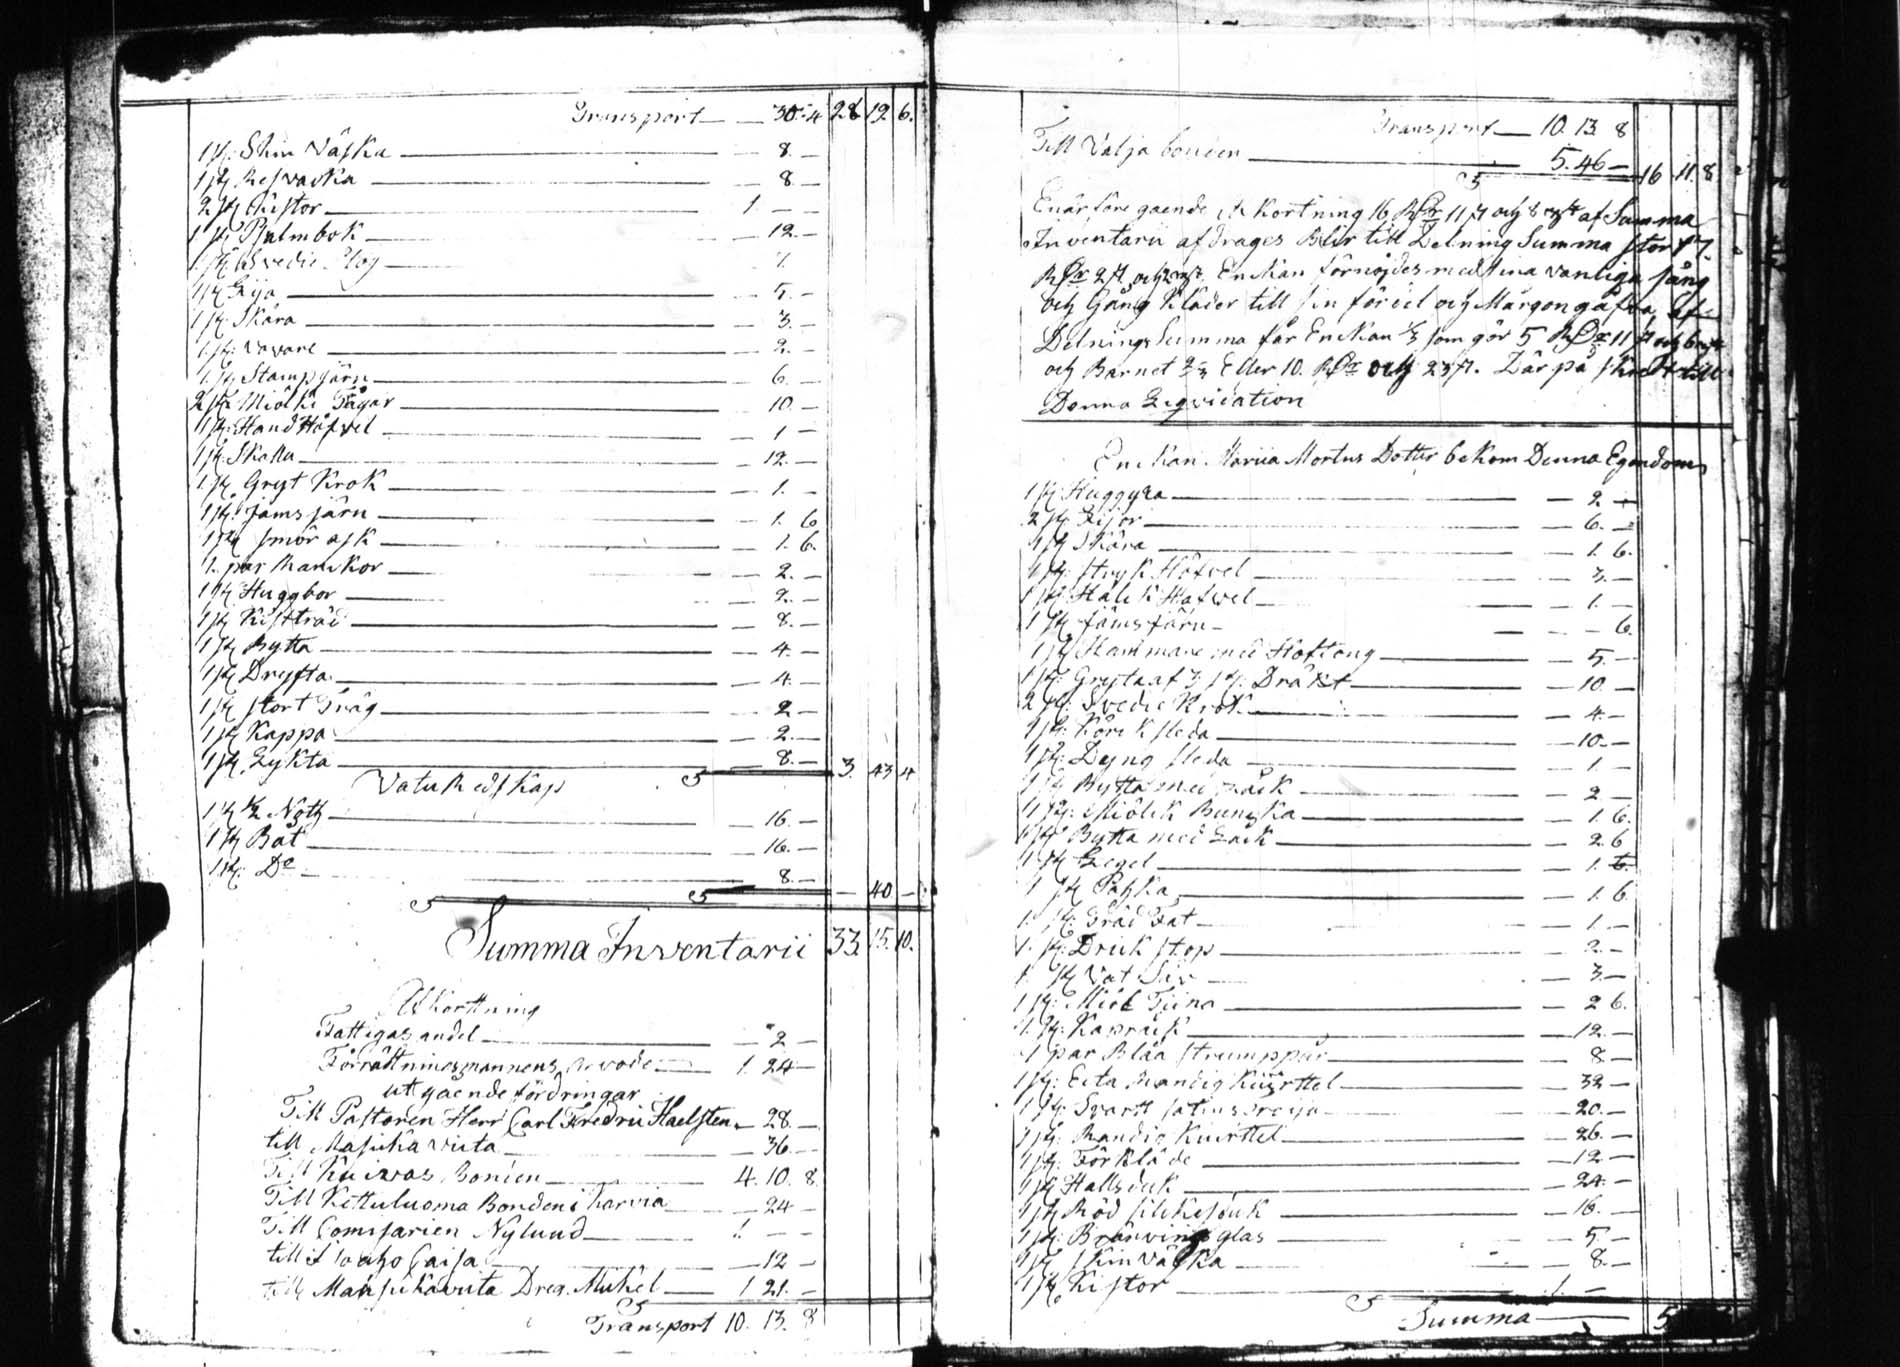 Transport — 30. 4 28 12 6.
1 st. Skin Väska — 8. —
1 st. Resväska — 8. —
2 st. Kistor — 1 — —
1 st. Psalmbok — 12. —
1 st. Svedie Plog —
1 st. Lija — 5. —
1 st. Skära — 3. —
1 st. Navare — 2. —
1 st. Stampjärn — 6. —
2 st. Miölk Tågar — 10. —
1 st. Hand Höfvel — 1 —
1 st. Skålla — 12. —
1 st. Gryt Krok — 1. —
1 st. Jämsjärn — 1. 6
1 st. smör ask — 1. 6.
1. par Kardkor — 2. —
1 st. Huggbor — 2. —
1 st. Kisträd — 8. —
1 st. Bytta — 4. —
1 st. Dryfta — 4. —
1 st. stort Tråg — 2 —
1 st. Kappa — 2. —
1 st. Lykta — 8. — 3. 43 4
Vatu Redskap
1 st. ½ Noth — 16. —
1 st. Båt — 16. —
1 st. Do — 8. — — 40 —
Summa Inventarii 33. 15. 10.
Afkorttning
Fattigas andel — 2 —
Förrättningsmannens Arvode — 1. 24 —
utgaende fördringar
Till Pastoren Herr Carl Fredric Haelsten — 28. —
till Masuka Viita — 36 —
Till Kuivas Bonden — 4. 10. 8.
Till Kettuluoma Bonden i Karvia — 24 —
Till Comisarien Nylund — 1. — —
till Caisa — 12 —
till Mansikkaviita Dreg. Mickel — 1 21. —
Transport 10. 13. 8
Transport — 10. 13 8
Till Valja bonden — 5. 46 — 16 11. 8
Enär före gaende Afkortning 16 RDr 11 st och 8 rst af Summa
Inventarii afdrages Blir till Delning Summa stor 17.
RDr 2 st och 2 rst. Enckan förnöjdes med sina vanliga säng
och Gång Kläder till sin fördel och Morgongåfva, af
Delnings Summa får Enckan ⅓ som gör 5 RDr 11 st och 6 rst
och Barnet ⅔ Eller 10. RDr och 23 st. Där på skredt till
Denna Liqvidation
Enckan Maria Mortus Dotter bekom Denna Egendom
1 st. Huggyxa — 2 —
2 st. Lijor — 6. —
1 st. Skära — 1. 6.
1 st. stryk Höfvel — 3. —
1 st. Hålck Höfvel — 1. —
1 st. Jämsjärn — — 6.
1 st. Hammare med Hoftong — 5. —
1 st. Gryta af 3 st. Dräkt — 10. —
2 st. Svedie Krok — 4. —
1 st. Körck sleda — 10. —
1 st. Dyng sleda — 1 —
1 st. Bytta med Låck — 2 —
1 st. Miölck Buncka — 1. 6.
1 st. Bytta med Låck — 2 6
1 st. Legel — 1. 6.
1 st. Påska — 1. 6.
1. st. Träd Fat — 1. —
1. st. Drick stop — 2. —
1 st. Vat Siv — 3 —
1 st. Miöl Tiina — 2 6.
1. st. Kapråck — 12. —
1 par Blåa strumppar — 8 —
1 st. Eita Randig Kiurttel — 32 —
1 st. Svartt satins tröija — 20. —
1 st. Randig Kiurttel — 26. —
1 st. Förkläde — 12 —
1 st. Hallsduk — 24. —
1 st. Röd silkisduk — 16. —
1 st. Bränvins glas — 5. —
1 st. skin Väska — 8. —
1 st. Kistor — 1 —
Summa — 5